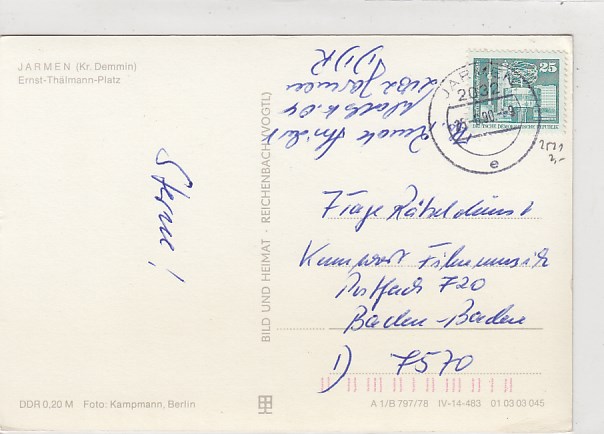 JARMEN (Kr. Demmin)
Ernst-Thälmann-Platz
Sterne!
BILD UND HEIMAT · REICHENBACH (VOGTL)
2032 Jarmen
DDR
JARMEN
2032
25
DEUTSCHE DEMOKRATISCHE REPUBLIK
e
2521
3,-
7 Tage Rätseldienst
Kennwort Filmmusik
Postfach 720
Baden-Baden
7570
DDR 0,20 M Foto: Kampmann, Berlin
A 1/B 797/78 IV-14-483 01 03 03 045